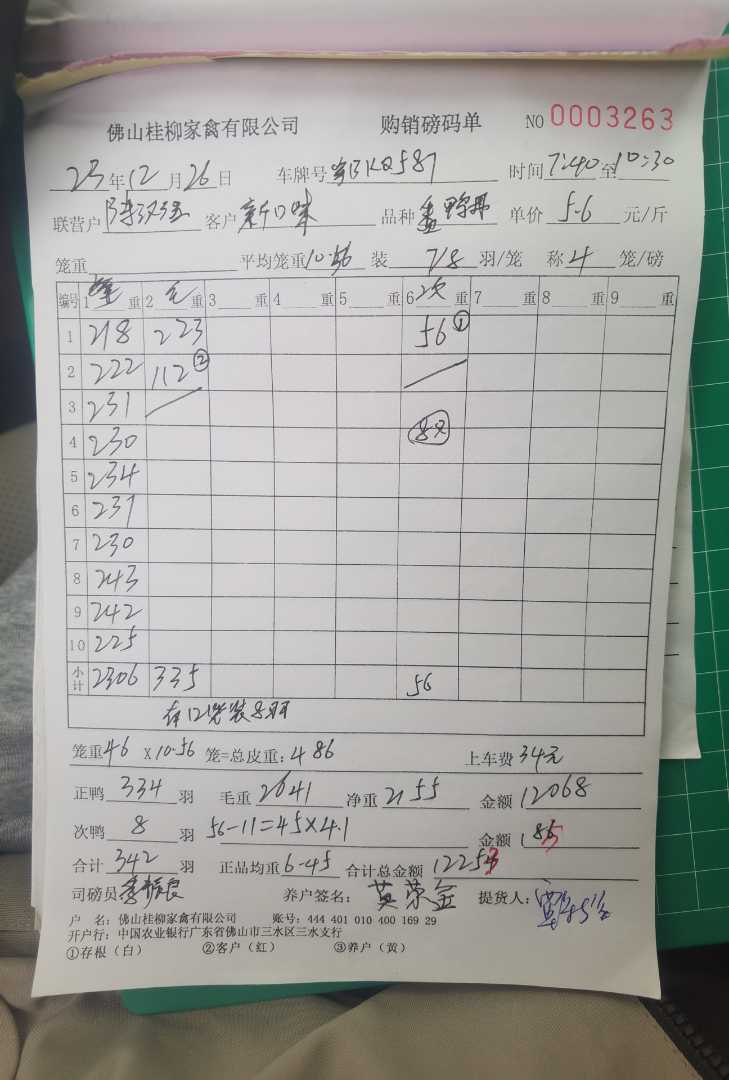 佛山桂柳家禽有限公司 购销磅码单 NO 0003263
23年12月26日 车牌号 KQ587 时间7:40至10:30
联营户 客户 新口味 品种 单价 5.6 元/斤
笼重 平均笼重10.56 装 7/8 羽/笼 称 4 笼/磅
编号 1 重 2 重 3 重 4 重 5 重 6 次 重 7 重 8 重 9 重
1 218 223 56 ①
2 222 112 ②
3 231
4 230 8只
5 234
6 231
7 230
8 243
9 242
10 225
小计 2306 335 56
有12笼装8羽
笼重46 X10.56 笼=总皮重:486 上车费 34元
正鸭 334 羽 毛重 2641 净重 2155 金额 12068
次鸭 8 羽 56-11=45×4.1 金额 185
合计 342 羽 正品均重 6.45 合计总金额 12253
司磅员 养户签名: 英荣金 提货人:
户 名: 佛山桂柳家禽有限公司 账号: 444 401 010 400 169 29
开户行: 中国农业银行广东省佛山市三水区三水支行
①存根(白) ②客户(红) ③养户(黄)